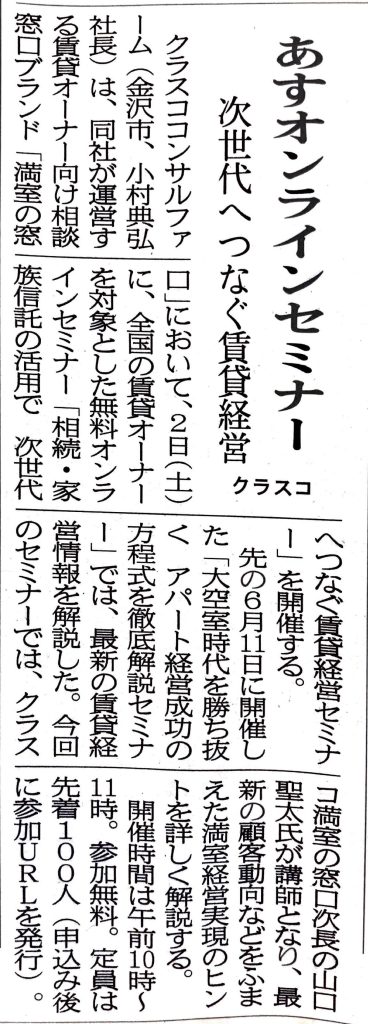 あすオンラインセミナー
次世代へつなぐ賃貸経営
クラスコ
クラスココンサルファ
ーム（金沢市、小村典弘
社長）は、同社が運営す
る賃貸オーナー向け相談
窓口ブランド「満室の窓
口」において、２日（土）
に、全国の賃貸オーナー
を対象とした無料オンラ
インセミナー「相続・家
族信託の活用で　次世代
へつなぐ賃貸経営セミナ
ー」を開催する。
先の６月11日に開催し
た「大空室時代を勝ち抜
く　アパート経営成功の
方程式を徹底解説セミナ
ー」では、最新の賃貸経
営情報を解説した。今回
のセミナーでは、クラス
コ満室の窓口次長の山口
聖太氏が講師となり、最
新の顧客動向などをふま
えた満室経営実現のヒン
トを詳しく解説する。
開催時間は午前10時～
11時。参加無料。定員は
先着１００人（申込み後
に参加ＵＲＬを発行）。